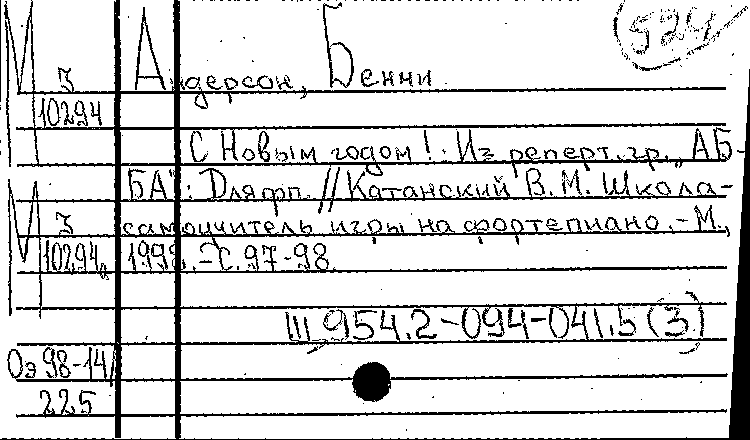 524
М
З Андерсон, Бенни
10294
С Новым годом!: Из реперт. гр. „АБ-
М БА": Для фп. // Катанский В. М. Школа-
З самоучитель игры на фортепиано. - М.,
10294а 1998. - С. 97-98.
Ш 954.2-094-041.5(3)
Оэ 98-14/
225